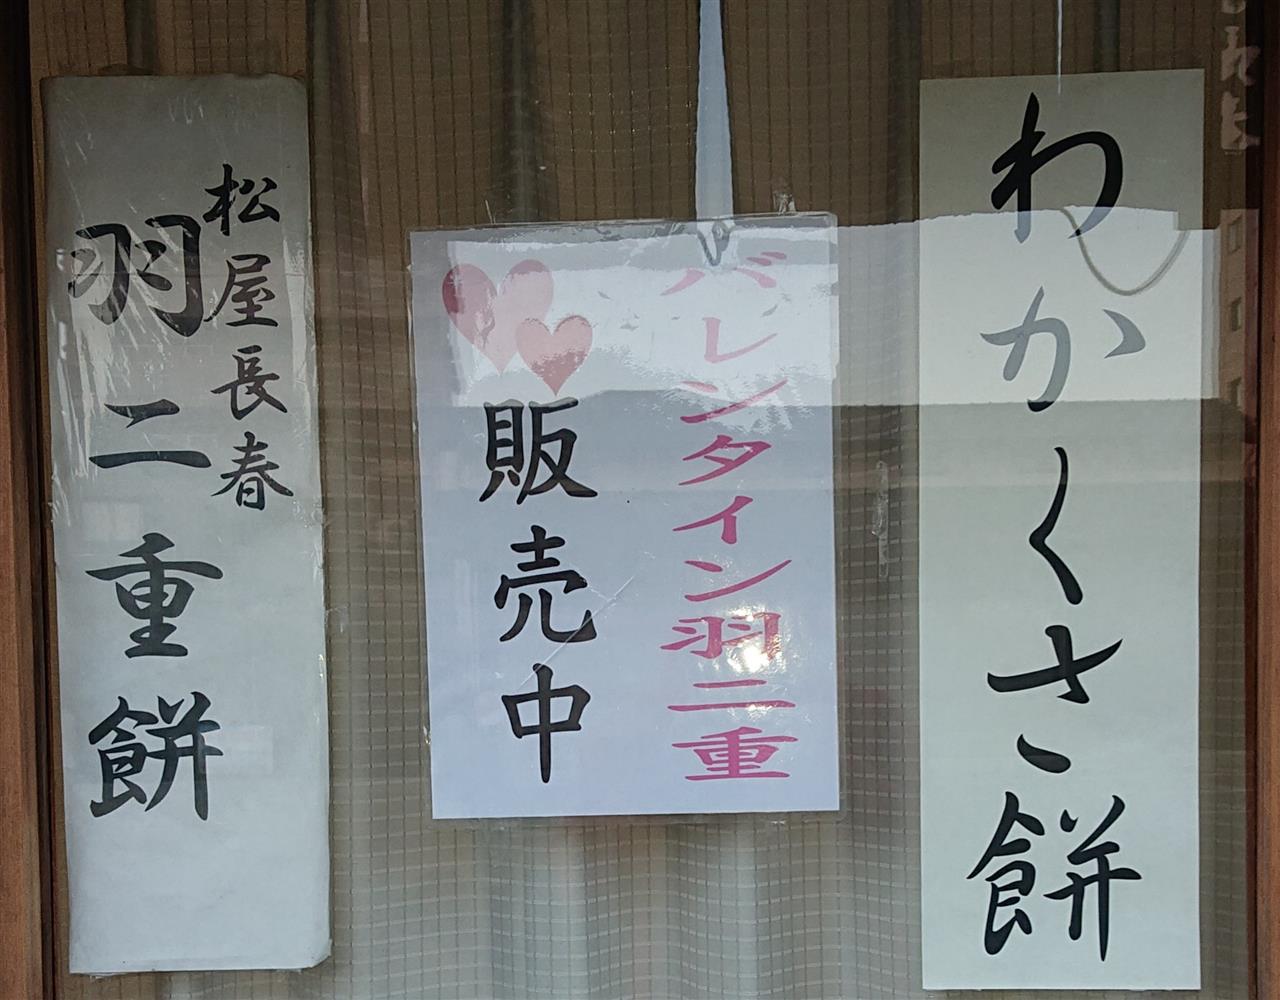 わかくさ餅
バレンタイン羽二重
販売中
松屋長春
羽二重餅